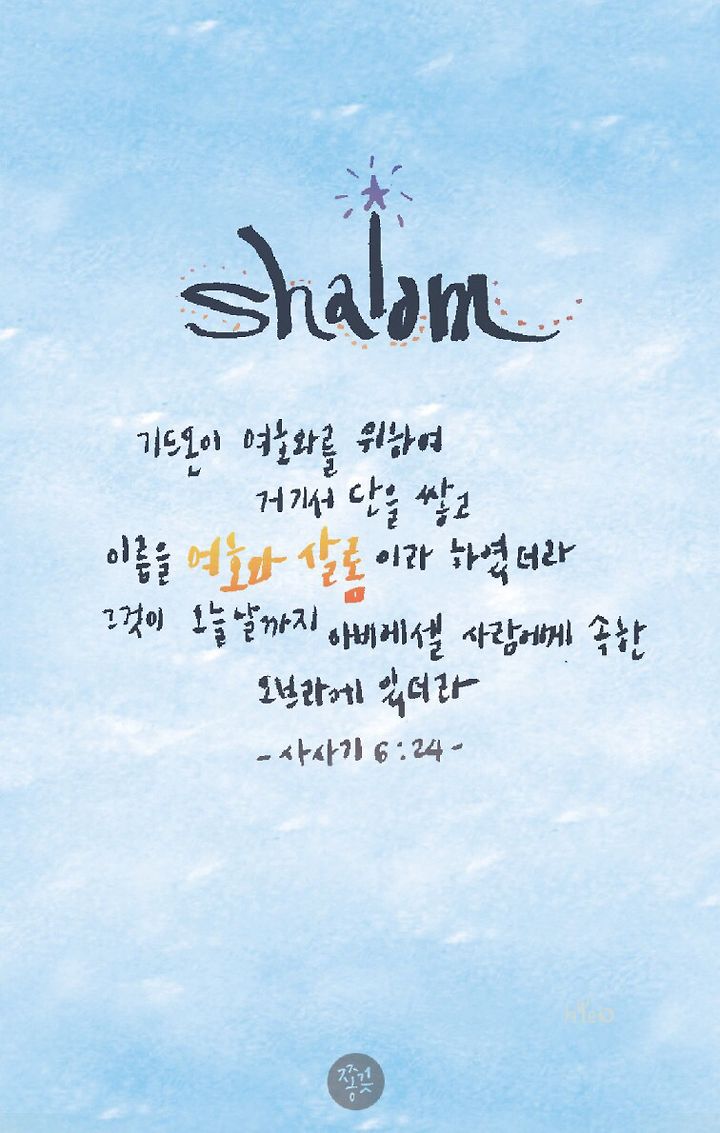 shalom
기드온이 여호와를 위하여
거기서 단을 쌓고
이름을 여호와 살롬 이라 하였더라
그것이 오늘날까지 아비에셀 사람에게 속한
오브라에 있더라
- 사사기 6:24 -